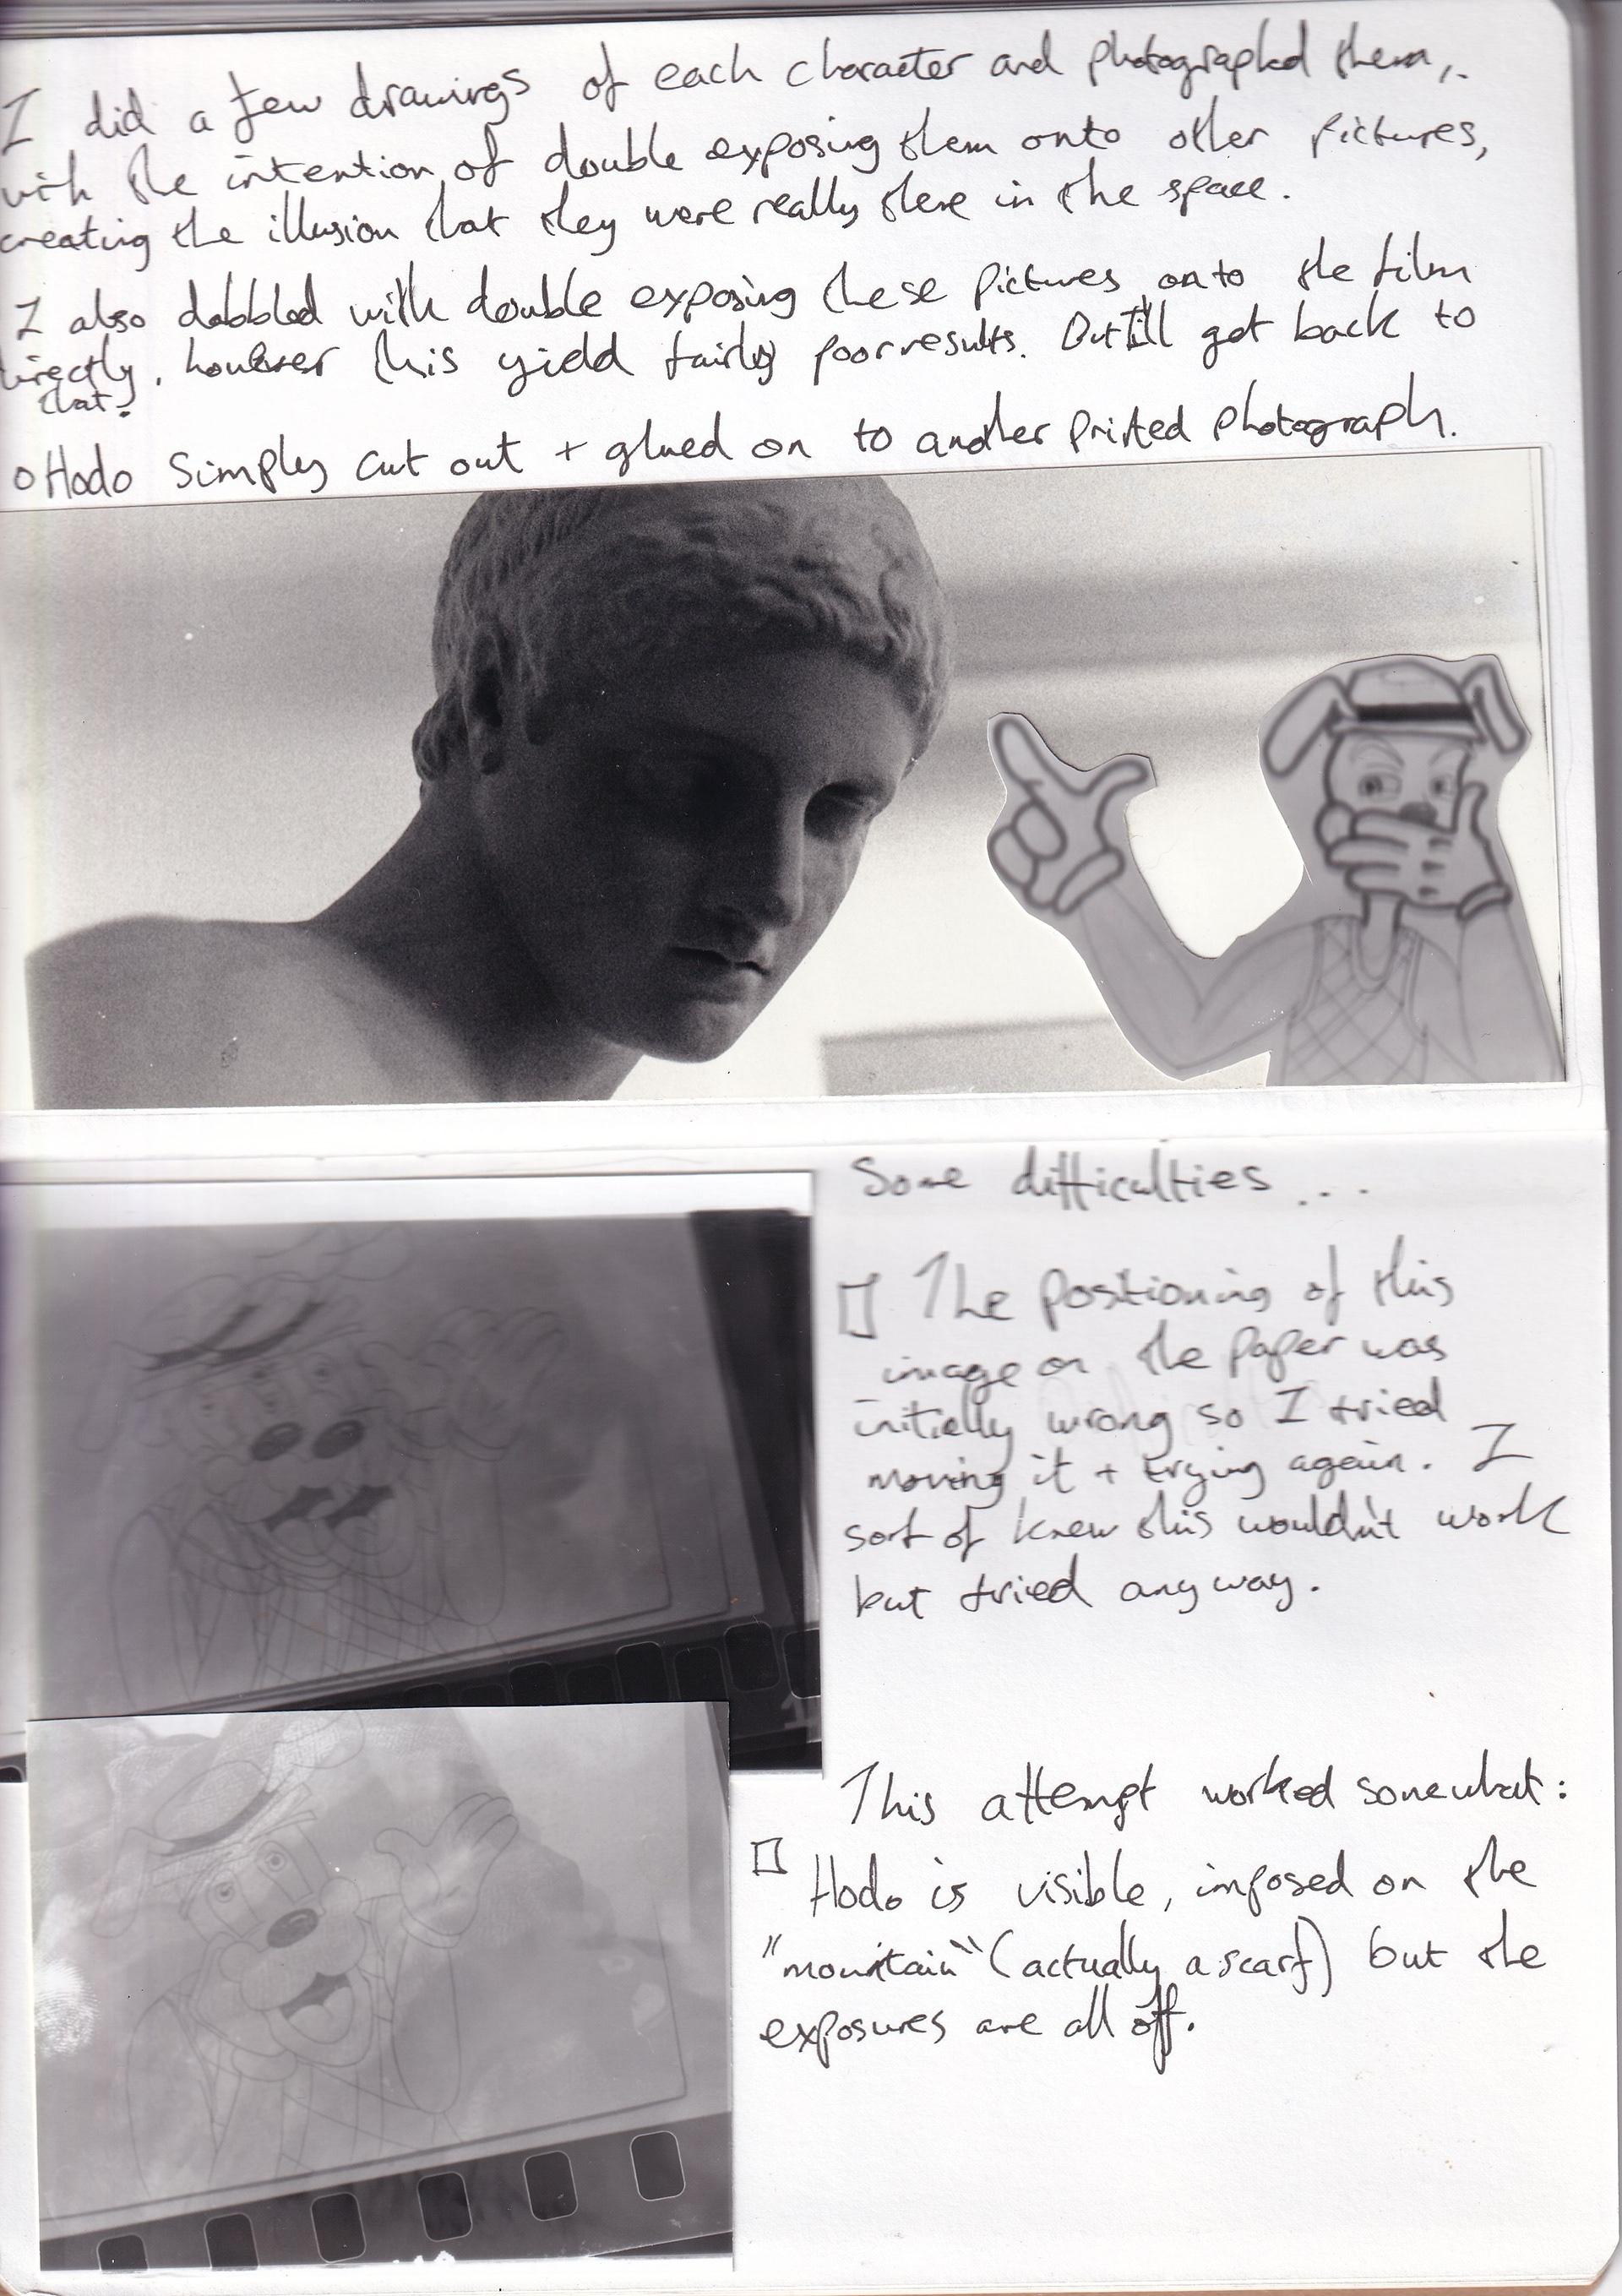 I did a few drawings of each character and photographed them,.
with the intention of double exposing them onto other pictures,
creating the illusion that they were really there in the space.
I also dabbled with double exposing these pictures onto the film
directly, however this yield fairly poor results. But I'll get back to
that.
o Hodo Simply cut out + glued on to another printed photograph.
Some difficulties...
The positioning of this
image on the paper was
initially wrong so I tried
moving it + trying again. I
sort of knew this wouldn't work
but tried anyway.
This attempt worked somewhat:
Hodo is visible, imposed on the
"mountain" (actually a scarf) but the
exposures are all off.